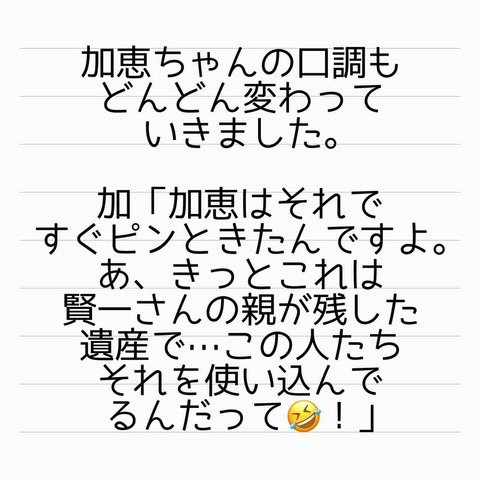 加恵ちゃんの口調も
どんどん変わって
いきました。
加「加恵はそれで
すぐピンときたんですよ。
あ、きっとこれは
賢一さんの親が残した
遺産で…この人たち
それを使い込んで
るんだって🤣！」